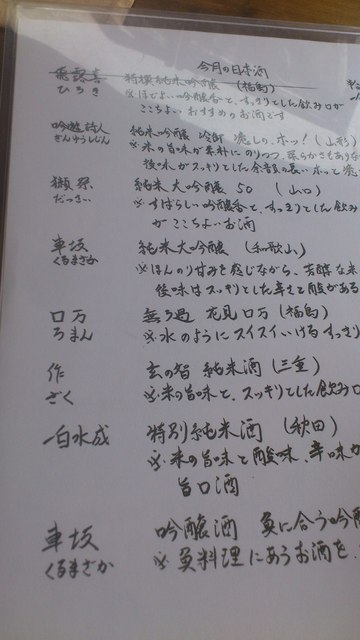 今月の日本酒
飛露喜 特撰純米吟醸 (福島)
ひろき ※ほどよい吟醸香と、すっきりとした飲み口が
ここちよいおすすめのお酒です
吟遊詩人 純米吟醸 冷卸 流しの、ホッ! (山形)
ぎんゆうしじん ※米の旨味が素朴にのりつつ、柔らかさもありな
後味がスッキリとした余韻の長いホッと流
獺祭 純米大吟醸 50 (山口)
だっさい ※すばらしい吟醸香と、すっきりとした飲み
がここちよいお酒
車坂 純米大吟醸 (和歌山)
くるまざか ※ほんのり甘みを感じながら、芳醇な米
後味はスッキリとした辛さと酸がある
ロ万 無ろ過 花見ロ万 (福島)
ろまん ※水のようにスイスイいけるすっきり
作 玄の智 純米酒 (三重)
ざく ※米の旨味と、スッキリとした飲み口
白水成 特別純米酒 (秋田)
※米の旨味と酸味、辛味か
旨口酒
車坂 吟醸酒 魚に合う吟醸
くるまざか ※魚料理にあうお酒を、